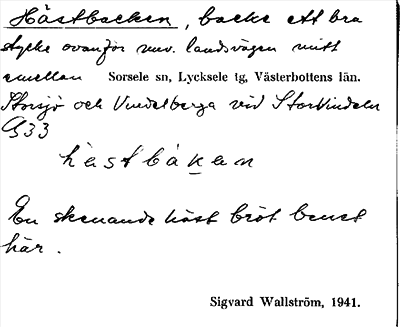 Hästbacken, backe ett bra
stycke ovanför nuv. landsvägen mitt
emellan Sorsele sn, Lycksele tg, Västerbottens län.
Storsjö och Vindelberga vid StorVindeln
G33
hästbakan
En skenande häst bröt benet
här.
Sigvard Wallström, 1941.